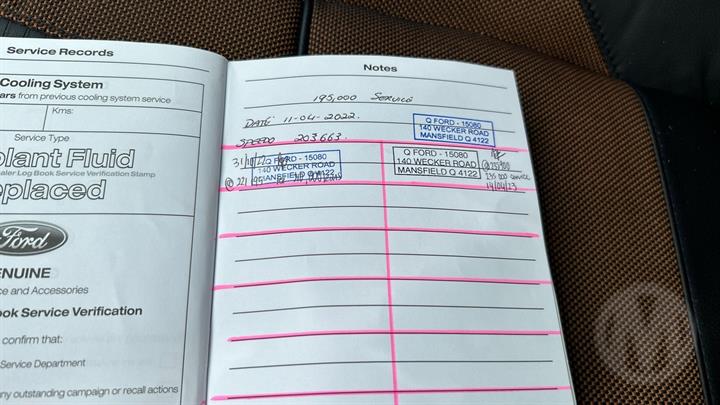 Service Records
Cooling System
ars from previous cooling system service
Kms:
Service Type
lant Fluid
ealer Log Book Service Verification Stamp
eplaced
Ford
ENUINE
ice and Accessories
ook Service Verification
confirm that:
Service Department
ny outstanding campaign or recall actions
Notes
195,000 Service
DATE 11-04-2022.
SPEEDO 203.663.
Q FORD - 15080
140 WECKER ROAD
MANSFIELD Q 4122
31/10/22
Q FORD - 15080
140 WECKER ROAD
MANSFIELD Q 4122
@ 221,95
Q FORD - 15080
140 WECKER ROAD
MANSFIELD Q 4122
235 000 service
14/04/23